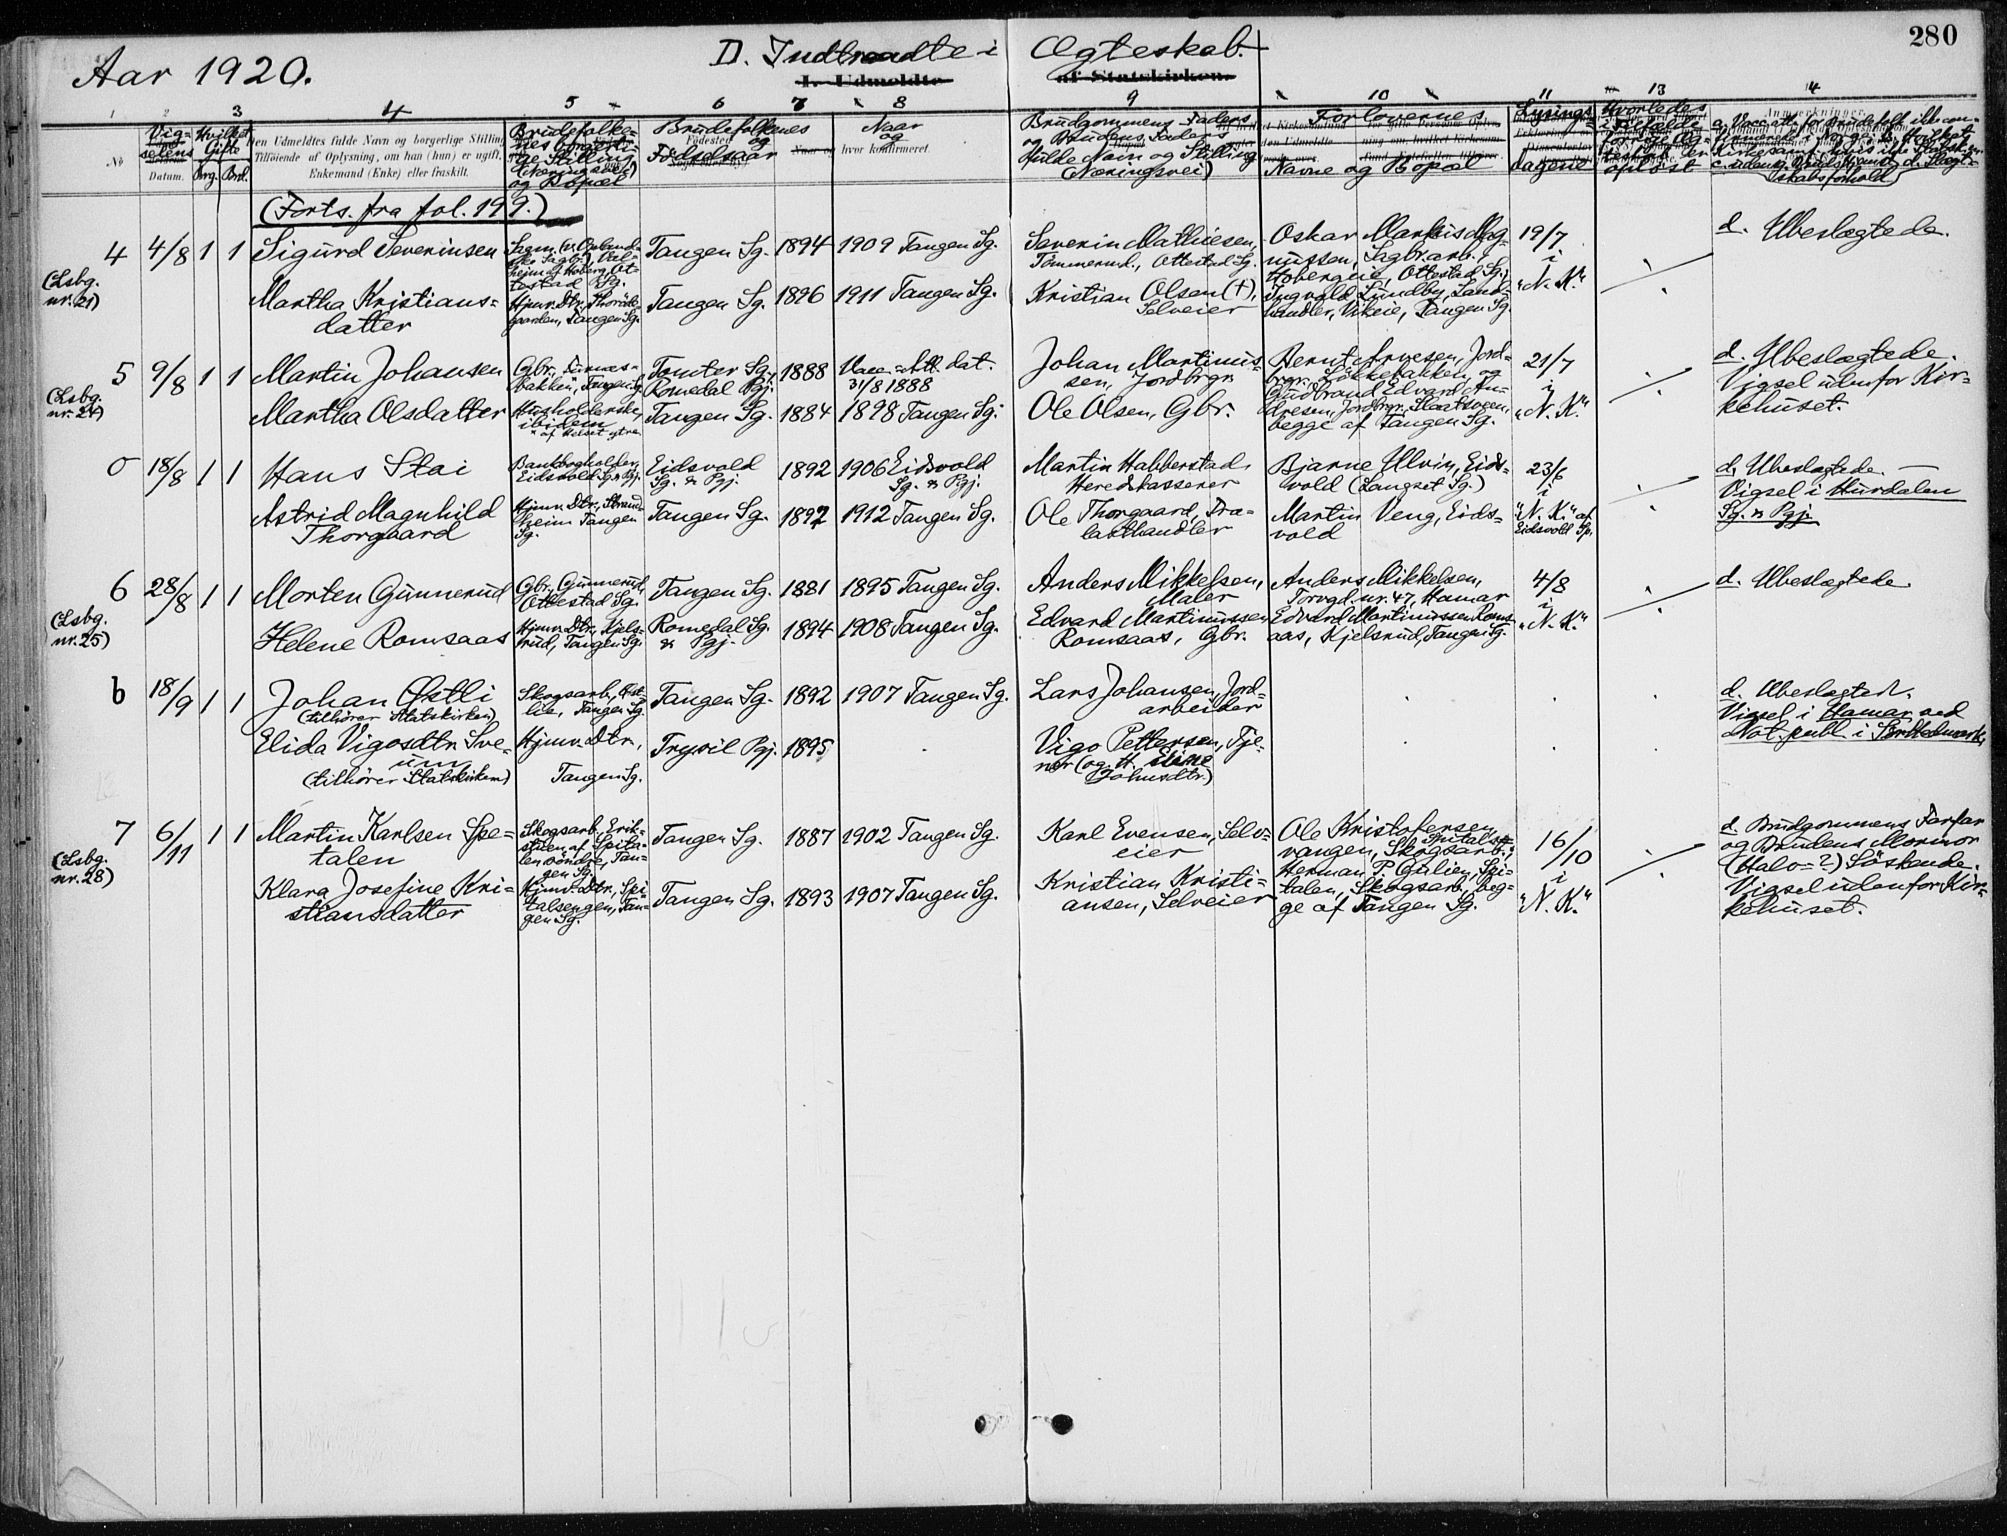 280
Aar 1920.
D. Indtraadte i Ægteskab.
1 2 3 4 5 6 7 8 9 10 11 13 14
No
Vig-
selens
Datum.
Hvilket
Gifte
Brg. Brd.
Den Udmeldtes fulde Navn og borgerlige Stilling
Tilføiende af Oplysning, om han (hun) er ugift,
Enkemand (Enke) eller fraskilt.
Brudefolke-
nes borgerli-
ge Stilling
(Næringsvei)
og Bopæl
Brudefolkenes
Fødested og
Fødselsaar
Naar
og
hvor konfirmeret.
Brudgommens Faders
og Brudens Faders
fulde Navn og Stilling
(Næringsvei)
Forlovernes
Navne og Bopæl
Lysnings-
dagene
(Forts. fra fol. 199.)
4
(Lsbg.
nr. 21)
4/8 1 1
Sigurd Severinsen
Tangen Sg. 1894 1909 Tangen Sg.
Severin Mathiesen,
Tømmerud., Ottestad Sg.
Oskar Markus Mag-
nussen, Sagbr.arb.,
Hobergeie, Ottestad Sg.;
19/7
i
"N. K."
d. Ubeslægtede.
Martha Kristians-
datter
Hjmv. Dtr., Thorüds-
gaarden, Tangen Sg.
Tangen Sg. 1896 1911 Tangen Sg.
Kristian Olsen (†),
Selveier
Ingvald Lundby, Land-
handler, Vikeie, Tangen Sg.
5
(Lsbg.
nr. 24)
9/8 1 1
Martin Johansen
Gbr., Furnæs-
bakken, Tangen Sg.
Tomter Sg.,
Romedal Pgj.
1888
Vacc. Att. dat.
31/8 1888
Johan Martinus-
sen, Jordbrgr.
Bernt Arnesen, Jord-
brgr., Løkkebakken, og
Gudbrand Edvard An-
dresen, Jordbrgr., Slaatsveen,
begge af Tangen Sg.
21/7
i
"N. K."
d. Ubeslægtede.
Vigsel udenfor Kir-
kehuset.
Martha Olsdatter
Husholderske,
ibidem
Tangen Sg. 1884 1898 Tangen Sg.
Ole Olsen, Gbr.
0
18/8 1 1
Hans Stai
Bankbogholder,
Eidsvold Sg. & Pgj.
Eidsvold
Sg. & Pgj.
1892
1906 Eidsvold
Sg. & Pgj.
Martin Habberstad,
Heredskasserer
Bjarne Ulvin, Eids-
vold (Langset Sg.)
23/6
i
"N. K." af
Eidsvold Sp.
d. Ubeslægtede. —
Vigsel i Hurdalen
Sg. & Pgj.
Astrid Magnhild
Thorgaard
Hjmv. Dtr., Strand-
heim Tangen
Sg.
Tangen Sg. 1892 1912 Tangen Sg.
Ole Thorgaard, Tra-
lasthandler
Martin Veng, Eids-
vold
6
(Lsbg.
nr. 25)
28/8 1 1
Morten Gunnerud
Gbr., Gunnerud,
Ottestad Sg.
Tangen Sg. 1881 1895 Tangen Sg.
Anders Mikkelsen,
Maler
Anders Mikkelsen,
Torvgd. nr. 47, Hamar
4/8
i
"N. K."
d. Ubeslægtede.
Helene Romsaas
Hjmv. Dtr., Kjels-
rud, Tangen Sg.
Romedal Sg.
& Pgj.
1894 1908 Tangen Sg.
Edvard Martinussen
Romsaas, Gbr.
Edvard Martinussen Roms-
aas, Kjelsrud, Tangen Sg.
b
18/9 1 1
Johan Østli
(tilhører Statskirken)
Skogsarb., Øst-
lie, Tangen Sg.
Tangen Sg. 1892 1907 Tangen Sg.
Lars Johansen, Jord-
arbeider
d. Ubeslægtede.
Vigsel i Hamar ved
Not. publ. i
Elida Vigosdtr. Sve-
um
(tilhører Statskirken)
Hjmv. Dtr.,
Tangen Sg.
Trysil Pgj. 1895
Vigo Pettersen, Tje-
ner (og H.
Johnsdtr.)
7
(Lsbg.
nr. 28)
6/11 1 1
Martin Karlsen Spe-
talen
Skogsarb., Erik-
stuen af Spita-
len søndre, Tan-
gen Sg.
Tangen Sg. 1887 1902 Tangen Sg.
Karl Evensen, Selv-
eier
Ole Kristofersen,
Spitals-
vangen, Skogsarb.,
Herman P. Gulien, Spi-
talen, Skogsarb., beg-
ge af Tangen Sg.
16/10
i
"N. K."
d. Brudgommens Farfar
og Brudens Mormor
(Halv-?) Søskende.
Vigsel udenfor Kir-
kehuset.
Klara Josefine Kri-
stiansdatter
Hjmv. Dtr., Spi-
talsengen, Tan-
gen Sg.
Tangen Sg. 1893 1907 Tangen Sg.
Kristian Kristi-
ansen, Selveier